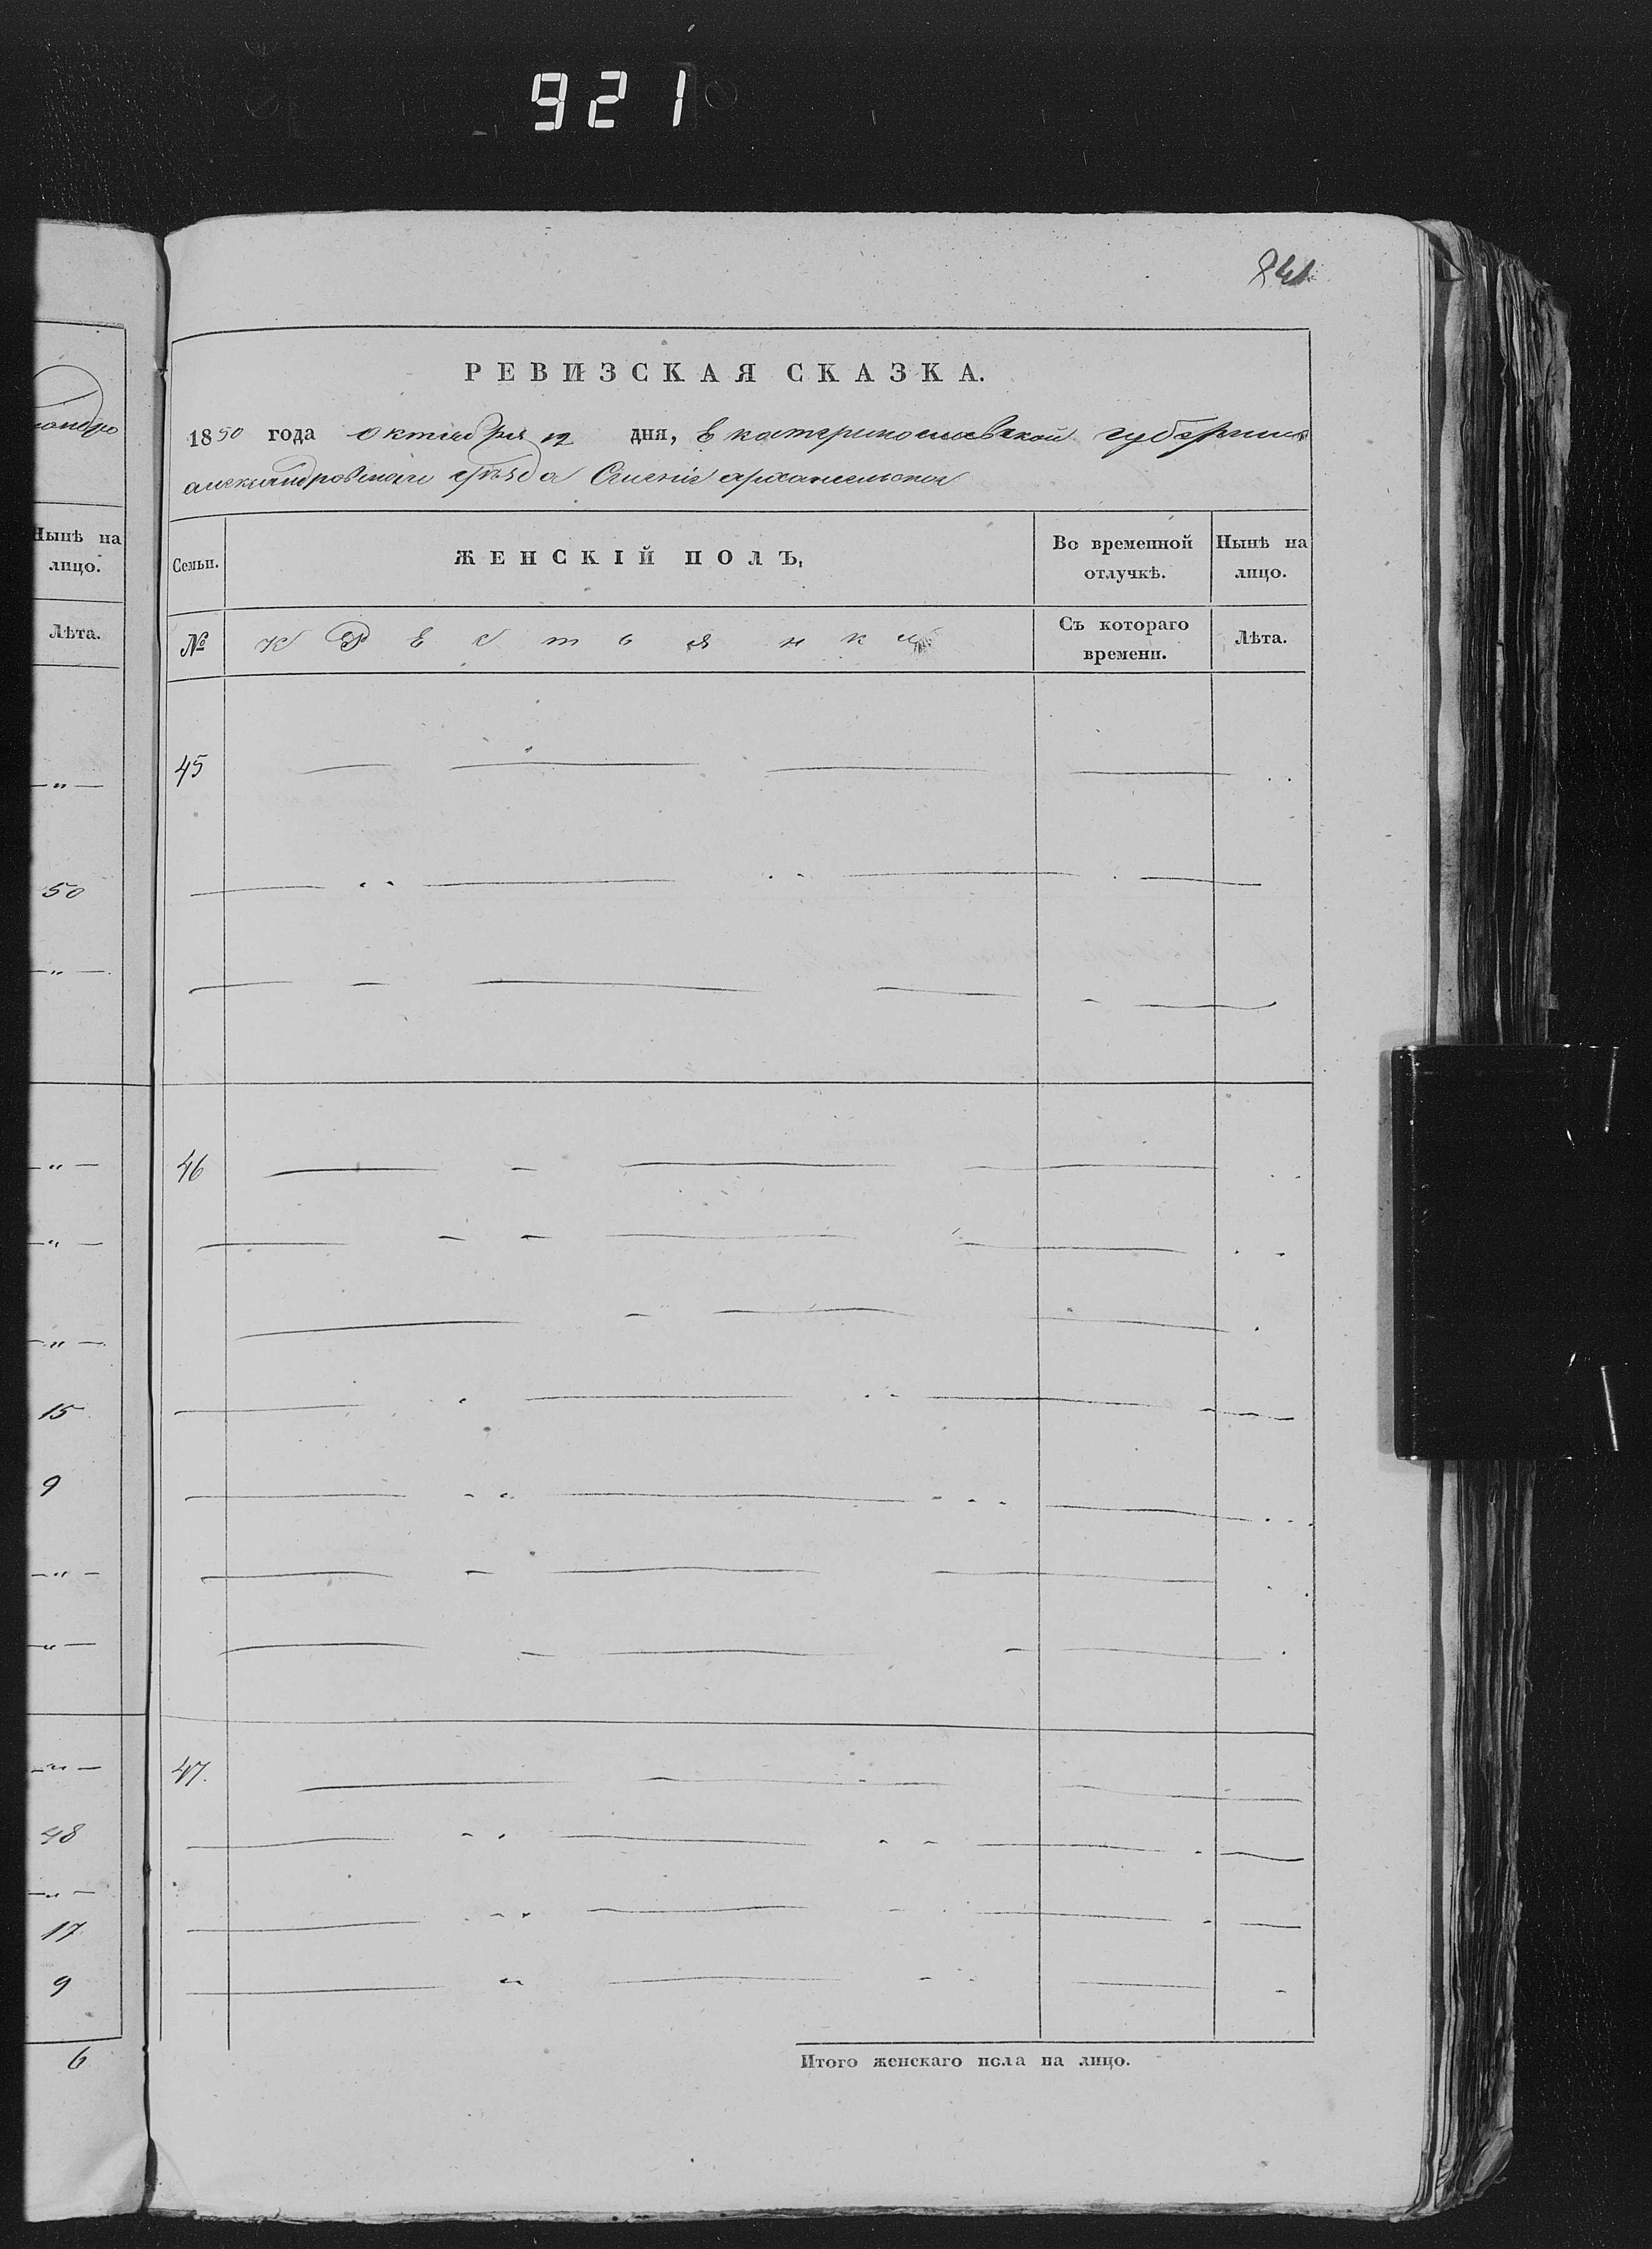 921
841
РЕВИЗСКАЯ СКАЗКА.
1850 года октября 12 дня, Екатеринославской губернии
александровскаго уѣзда Селенiе архангельскои
Нынѣ на лицо.
Лѣта.
Семьи.
ЖЕНСКІЙ ПОЛЪ,
Во временной отлучкѣ.
Нынѣ на лицо.
№
Крестьянки
Съ котораго времени.
Лѣта.
45
50
46
15
9
47.
48
17
9
6
Итого женскаго пола на лицо.